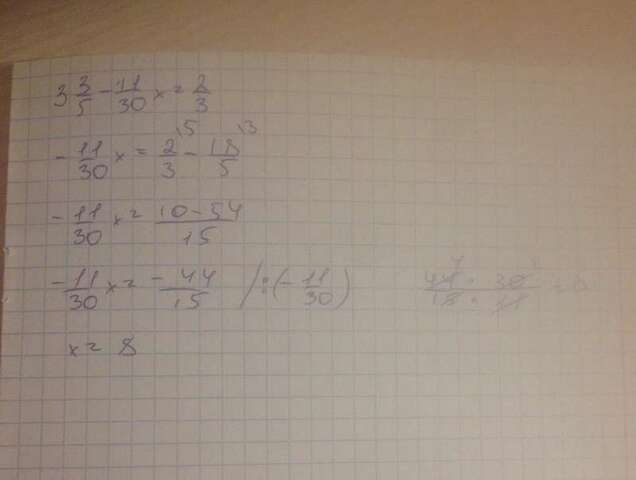 3 3/5 - 11/30 x = 2/3
- 11/30 x = 2/3 \5 - 18/5 \3
- 11/30 x = (10 - 54)/15
- 11/30 x = - 44/15 /:(- 11/30)
x = 8